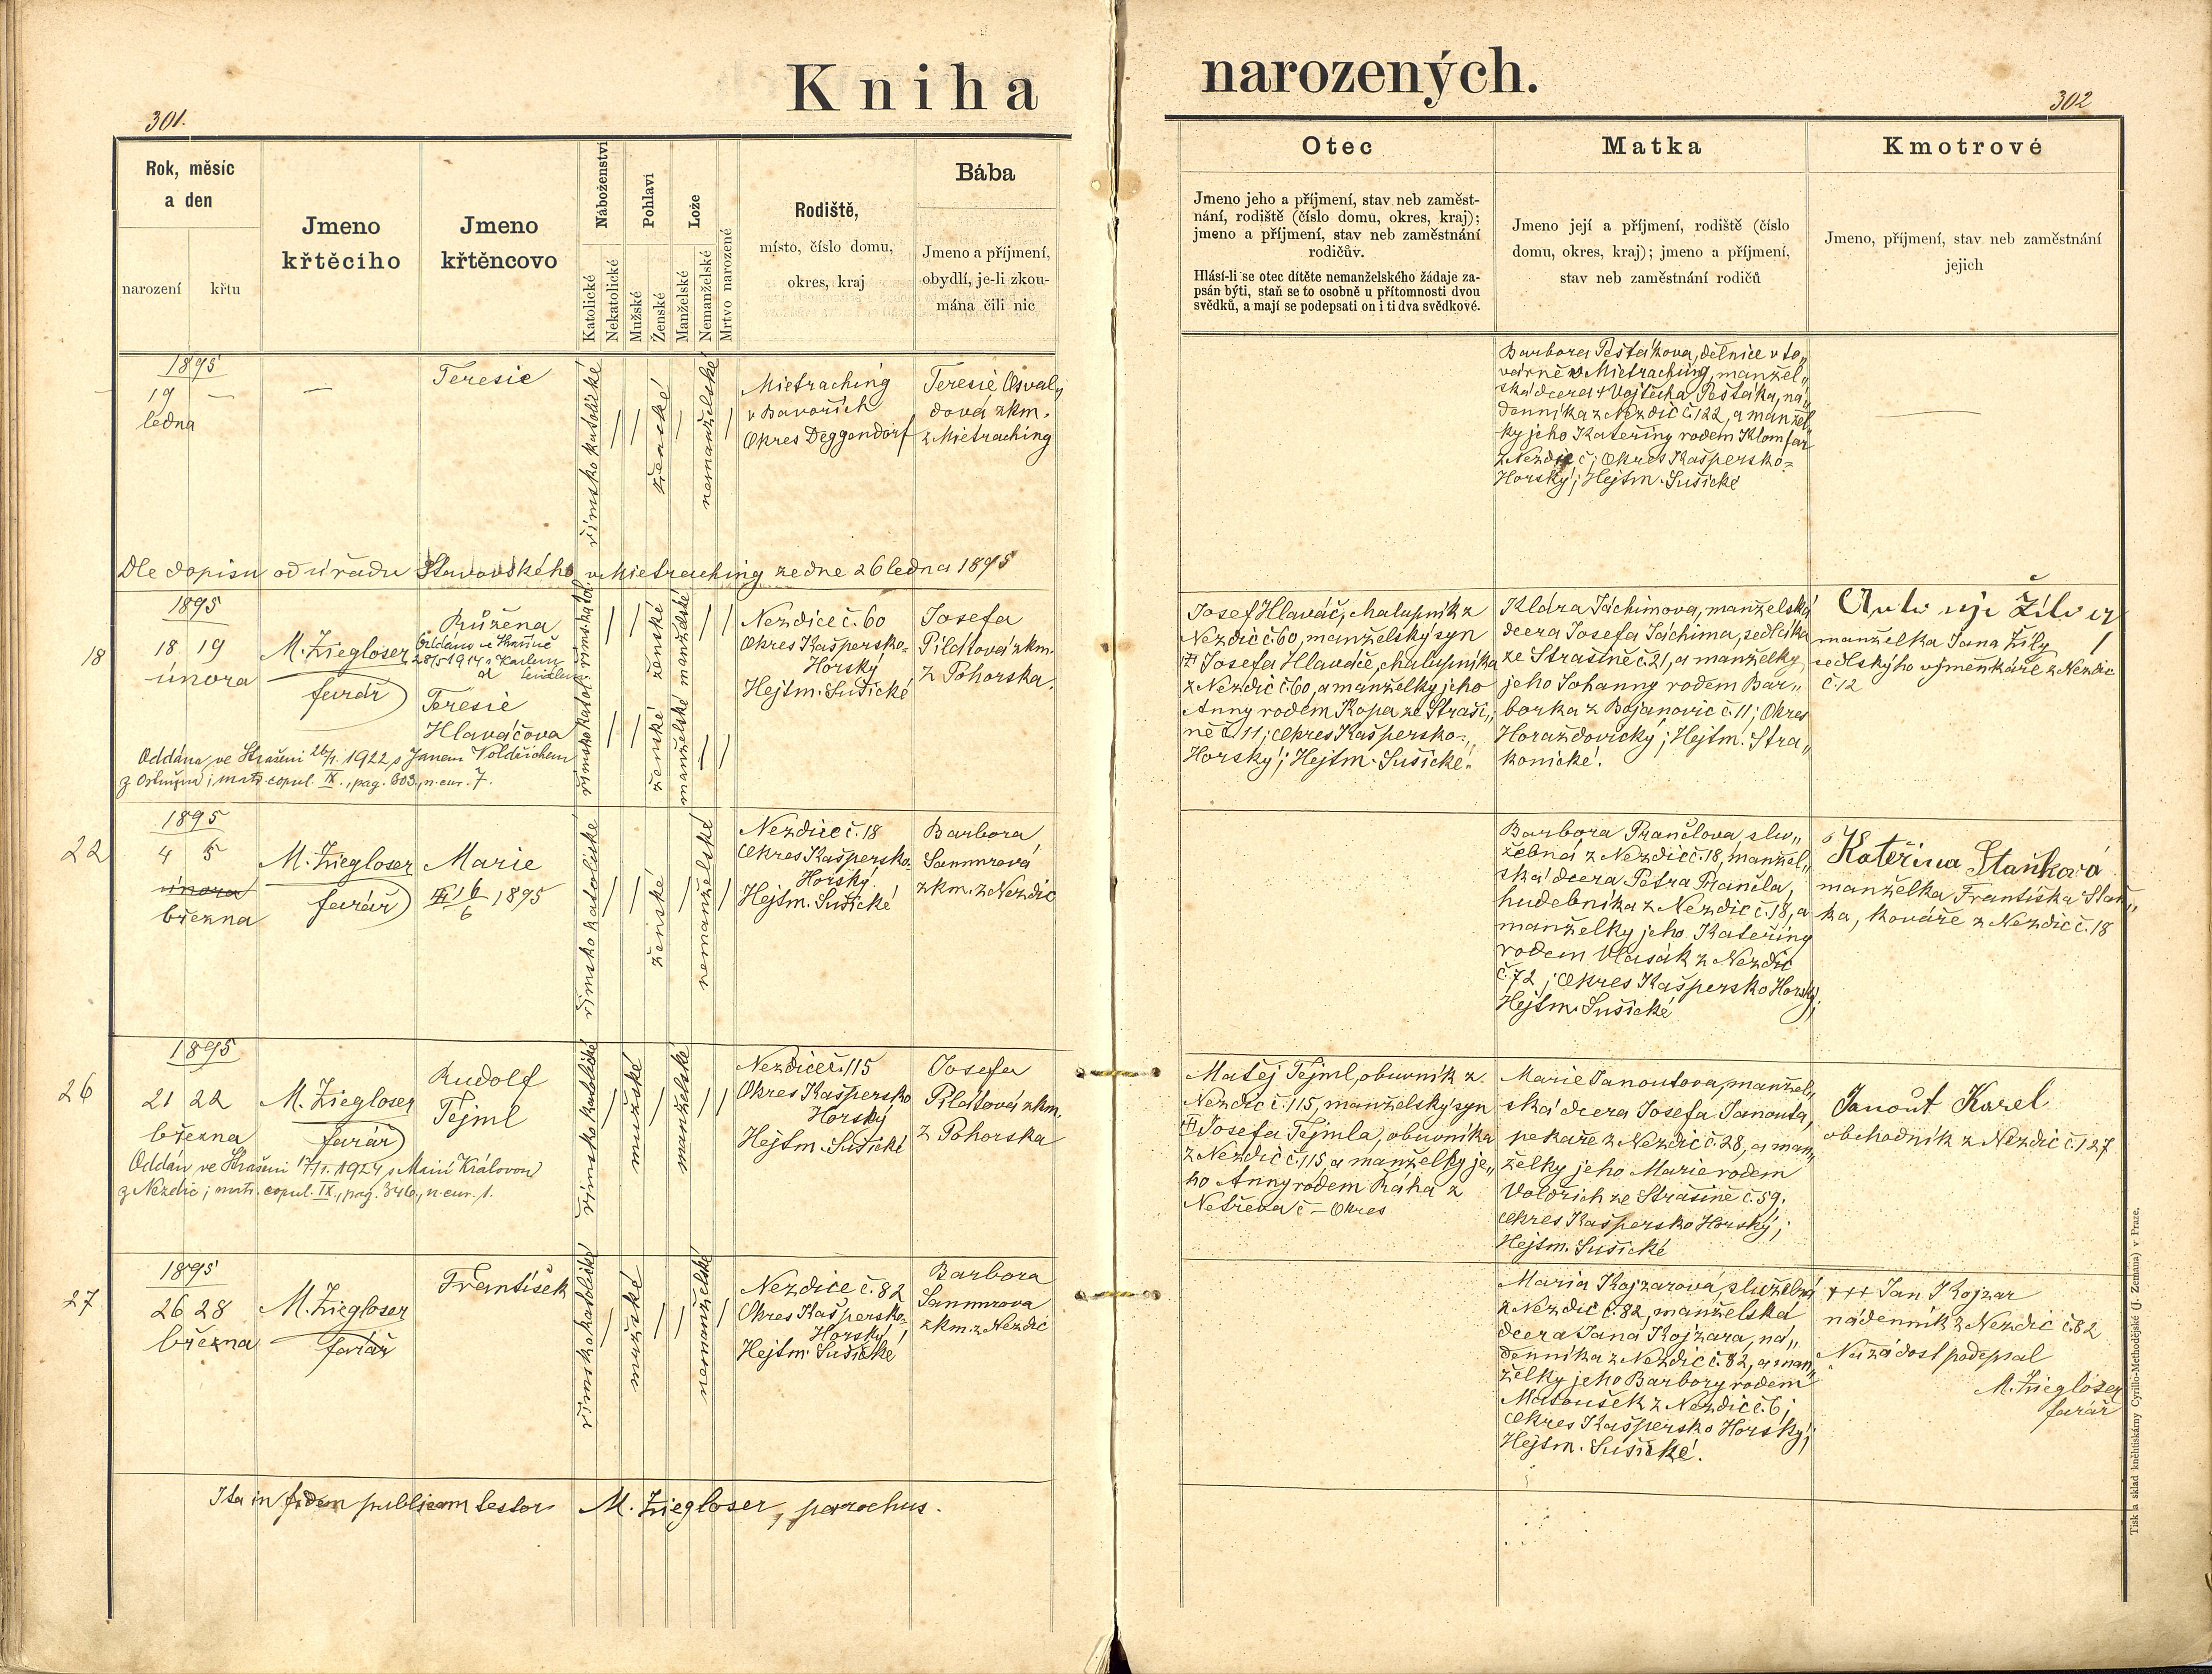 Kniha narozených.
301.
302
Rok, měsíc
a den
narození
křtu
Jmeno
křtěcího
Jmeno
křtěncovo
Náboženství
Katolické
Nekatolické
Pohlaví
Mužské
Ženské
Lože
Manželské
Nemanželské
Mrtvo narozené
Rodiště,
místo, číslo domu,
okres, kraj
Bába
Jmeno a příjmení,
obydlí, je-li zkou-
mána čili nic
Otec
Jmeno jeho a příjmení, stav neb zaměst-
nání, rodiště (číslo domu, okres, kraj);
jmeno a příjmení, stav neb zaměstnání
rodičův.
Hlásí-li se otec dítěte nemanželského žádaje za-
psán býti, staň se to osobně u přítomnosti dvou
svědků, a mají se podepsati on i ti dva svědkové.
Matka
Jmeno její a příjmení, rodiště (číslo
domu, okres, kraj); jmeno a příjmení,
stav neb zaměstnání rodičů
Kmotrové
Jmeno, příjmení, stav neb zaměstnání
jejich
1895
19 —
ledna
—
Teresie
římsko katolické
ženské
nemanželské
Mietraching
v Bavořích
Okres Deggendorf
Teresie Osval„
dová zkm.
z Mietraching
Barbora Pešťákova, dělnice v to„
várně v Mietraching, manžel„
ská dcera † Vojtěcha Pešťáka, ná„
denníka z Nezdic č. 122, a manžel„
ky jeho Kateřiny rodem Klomfar
z Nezdic č; Okres Kašpersko-
Horský; Hejtm. Sušické
—
Dle dopisu od úřadu Stavovského v Mietraching ze dne 26 ledna 1895
18
1895
18 19
února
M. Ziegloser
farář
Růžena
28/5 1917 s Karlem
Teresie
Hlaváčova
Oddána ve Strašeni 1922 s Janem Voldřichem
matr. copul. IX., pag. 303, n. cur. 7.
římsko katol. římsko katol.
ženské ženské
manželské manželské
Nezdice č. 60
Okres Kašpersko-
Horský
Hejtm. Sušické
Josefa
Pilátová zkm.
z Pohorska.
Josef Hlaváč, chalupník z
Nezdic č. 60, manželský syn
Josefa Hlaváče, chalupníka
z Nezdic č. 60, a manželky jeho
Anny rodem Kopa ze Straši„
ně č. 11; Okres Kašpersko-
Horský; Hejtm. Sušické.
Klára Jáchimova, manželská
dcera Josefa Jáchima, sedláka
ze Strašině č. 21, a manželky
jeho Johanny rodem Bar„
borka z Bojanovic č. 11; Okres
Horažďovický; Hejtm. Stra„
konické.
manželka Jana Žíly
sedlského výměnkáře z Nezdic
č. 12
22
1895
4 5
března
M. Ziegloser
farář
Marie
16/6 1895
římsko katolické
ženské
nemanželské
Nezdice č. 18
Okres Kašpersko-
Horský
Hejtm. Sušické
Barbora
Sammrová
zkm. z Nezdic
Barbora Prančlova, slu„
žebná z Nezdic č. 18, manžel„
ská dcera Petra Prančla,
hudebníka z Nezdic č. 18, a
manželky jeho Kateřiny
rodem Vlasák z Nezdic
č. 72; Okres Kašpersko Horský;
Hejtm. Sušické
Kateřina Staňková
manželka Františka Staň„
ka, kováře z Nezdic č. 18
26
1895
21 22
března
M. Ziegloser
farář
Rudolf
Tejml
Oddán ve Strašeni 1924 s Marií Královou
z Nezdic; matr. copul. IX., pag. 346, n. cur. 1.
římsko katolické
mužské
manželské
Nezdice č. 115
Okres Kašpersko
Horský
Hejtm. Sušické
Josefa
Pilátová zkm.
z Pohorska
Matěj Tejml, obuvník z
Nezdic č. 115, manželský syn
Josefa Tejmla, obuvníka
z Nezdic č. 115, a manželky je„
ho Anny rodem Ráha z
č — Okres
Marie Janoutova, manžel„
ská dcera Josefa Janouta,
pekaře z Nezdic č. 28, a man„
želky jeho Marie rodem
Voldřich ze Strašině č. 59,
Okres Kašpersko Horský;
Hejtm. Sušické
Janout Karel
obchodník z Nezdic č. 127
27
1895
26 28
března
M. Ziegloser
farář
František
římsko katolické
mužské
nemanželské
Nezdice č. 82
Okres Kašpersko-
Horský;
Hejtm. Sušické
Barbora
Sammrova
zkm. z Nezdic
Maria Kojzarová, služebná
z Nezdic č. 82, manželská
dcera Jana Kojzara, ná„
denníka z Nezdic č. 82, a man„
želky jeho Barbory rodem
Matoušek z Nezdic č. 6;
Okres Kašpersko Horský;
Hejtm. Sušické.
+++ Jan Kojzar
nádenník z Nezdic č. 82
Na žádost podepsal
M. Ziegloser
farář
Ita in fidem publicam testor M. Ziegloser, parochus.
Tisk a sklad knihtiskárny Cyrillo-Methodějské (J. Zeman) v Praze.